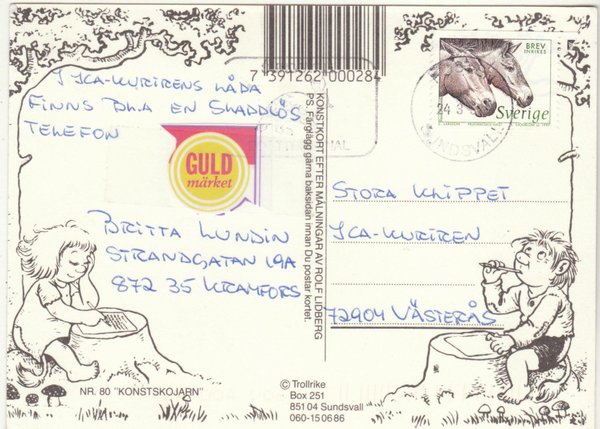 7 391262 000284
BREV
INRIKES
Sverige
24 3
SUNDSVALL
I ICA-KURIRENS LÅDA
FINNS BL.A EN SLADDLÖS
TELEFON
GULD
märket
BRITTA LUNDIN
STRANDGATAN 19A
872 35 KRAMFORS
KONSTKORT EFTER MÅLNINGAR AV ROLF LIDBERG
PS. Färglägg gärna baksidan innan Du postar kortet.
STORA KLIPPET
ICA-KURIREN
72904 VÄSTERÅS
NR. 80 "KONSTSKOJARN"
© Trollrike
Box 251
851 04 Sundsvall
060-15 06 86